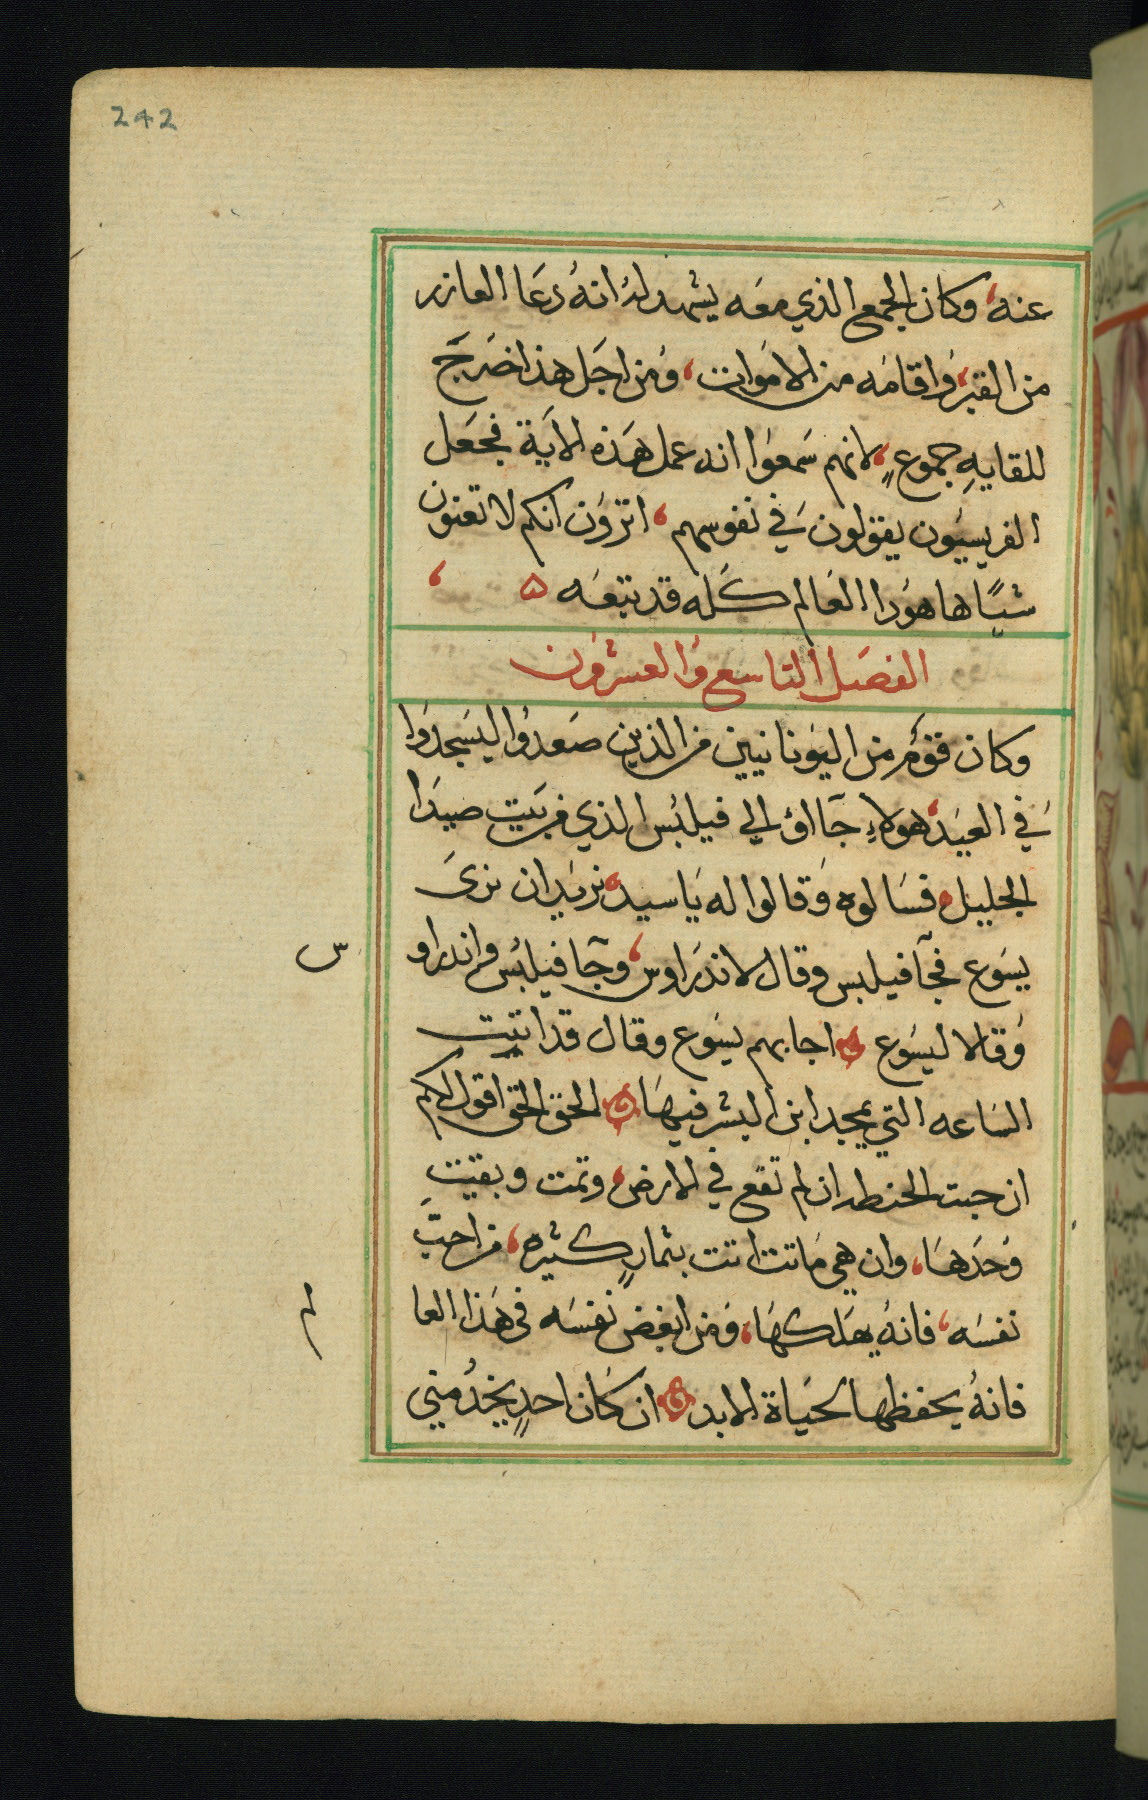 242
عنه، وكان الجمع الذي معَه يشهد لهُ انهُ دعَا العازر
من القبر، وَاقامَه من الامَوات، وَمن اجَل هذا خَرجَ
للقايهِ جموعٍ، لانهم سَمعوَا انه عمل هَذه الايَة فجعَل
الفريسيَون يقولون في نفوسهم، اتروَن انكم لا تغنون
شياً هاهوَذا العَالم كَله قد تبعَه ه ،
الفصَل التاسع وَالعشرون
وكان قومٌ من اليوَنانيين من الذين صَعدُوا ليَسجدوَا
في العيَد، هولاءِ جآاوُ الي فيلبُس الذي من بَيت صيدَا
الجليل، فسَالوه وَقالوا له يَا سيد، نريَد ان نرىَ
يسَوع فجآ فيلبس وقال لاندرَاوس، وجآ فيلبُس واندراو
س
وَقالا ليسَوع اجابهم يسَوع وقال قد اتيت
السَاعه التي يمجد ابن البشر فيهَا الحق الحق اقول لكم
ان حبت الحنطه ان لم تقع في الارض، وتمت وبقيتِ
وَحدَهَا، وان هي مَاتت اتت بثمارٍ كثيره، من احبّ
نفسَه، فانهُ يهلكهَا، وَمن ابغض نفسَه في هَذا العا
لم
فانهُ يحفظها لحيَاة الابد ان كَان احدٍ يخدُمني